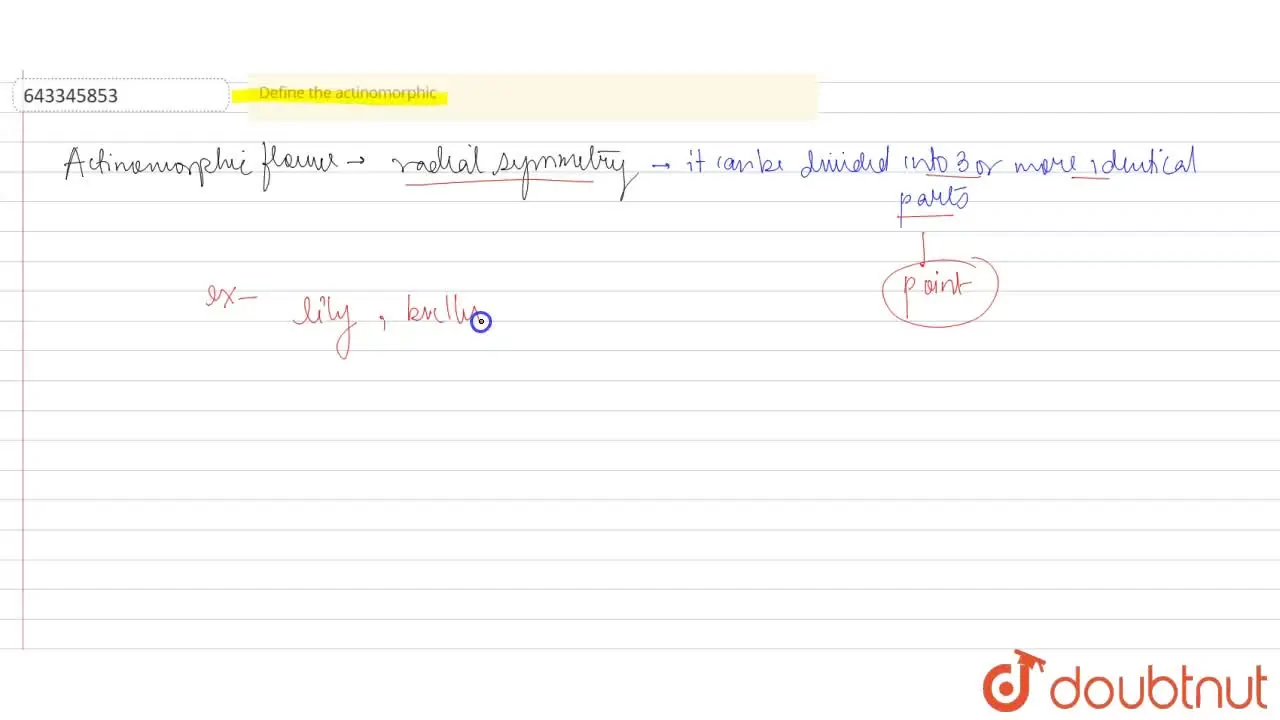 643345853 Define the actinomorphic
Actinomorphic flower → radial symmetry → it can be divided into 3 or more identical
parts
point
ex-
lily,
doubtnut